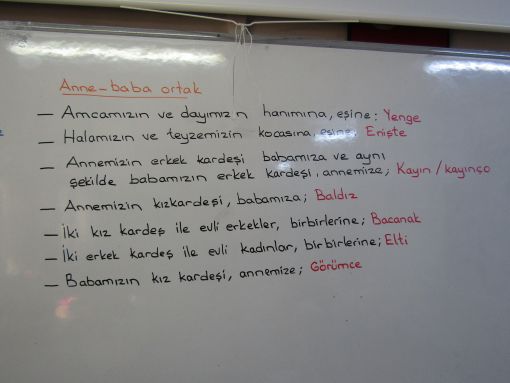 Anne-baba ortak
— Amcamızın ve dayımızın hanımına, eşine; Yenge
— Halamızın ve teyzemizin kocasına, eşine; Enişte
— Annemizin erkek kardeşi babamıza ve aynı
şekilde babamızın erkek kardeşi, annemize; Kayın/kayınço
— Annemizin kızkardeşi, babamıza; Baldız
— İki kız kardeş ile evli erkekler, birbirlerine; Bacanak
— İki erkek kardeş ile evli kadınlar, birbirlerine; Elti
— Babamızın kız kardeşi, annemize; Görümce